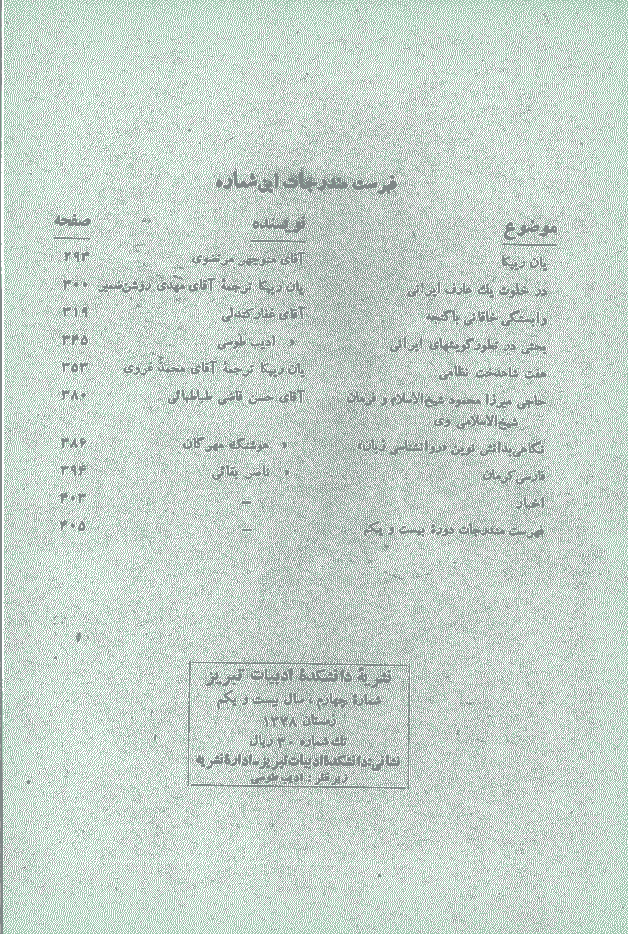 فهرست مندرجات این شماره
موضوع نویسنده صفحه
یان ریپکا آقای منوچهر مرتضوی ۲۹۳
در خلوت یك عارف ایرانی یان ریپکا ترجمهٔ آقای مهدی روشن‌ضمیر ۳۰۰
وابستگی خاقانی باگنجه آقای غفار کندلی ۳۱۹
بحثی در تطور گویشهای ایرانی » ادیب طوسی ۳۴۵
هفت شاهدخت نظامی یان ریپکا ترجمهٔ آقای محمد غروی ۳۵۳
حاجی میرزا محمود شیخ‌الاسلام و فرمان آقای حسن قاضی طباطبائی ۳۸۰
شیخ‌الاسلامی وی
نگاهی بدانش نوین «روانشناسی زبان» » هوشنگ مهرگان ۳۸۶
فارسی کرمان » ناصر بقائی ۳۹۴
اخبار — ۴۰۳
فهرست مندرجات دورهٔ بیست و یکم — ۴۰۵
نشریهٔ دانشکدهٔ ادبیات تبریز
شمارهٔ چهارم ، سال بیست و یکم
زمستان
تك شماره ۳۰ ریال
نشانی: دانشکدهٔ ادبیات تبریز ـ ادارهٔ نشریه
زیر نظر : ادیب طوسی